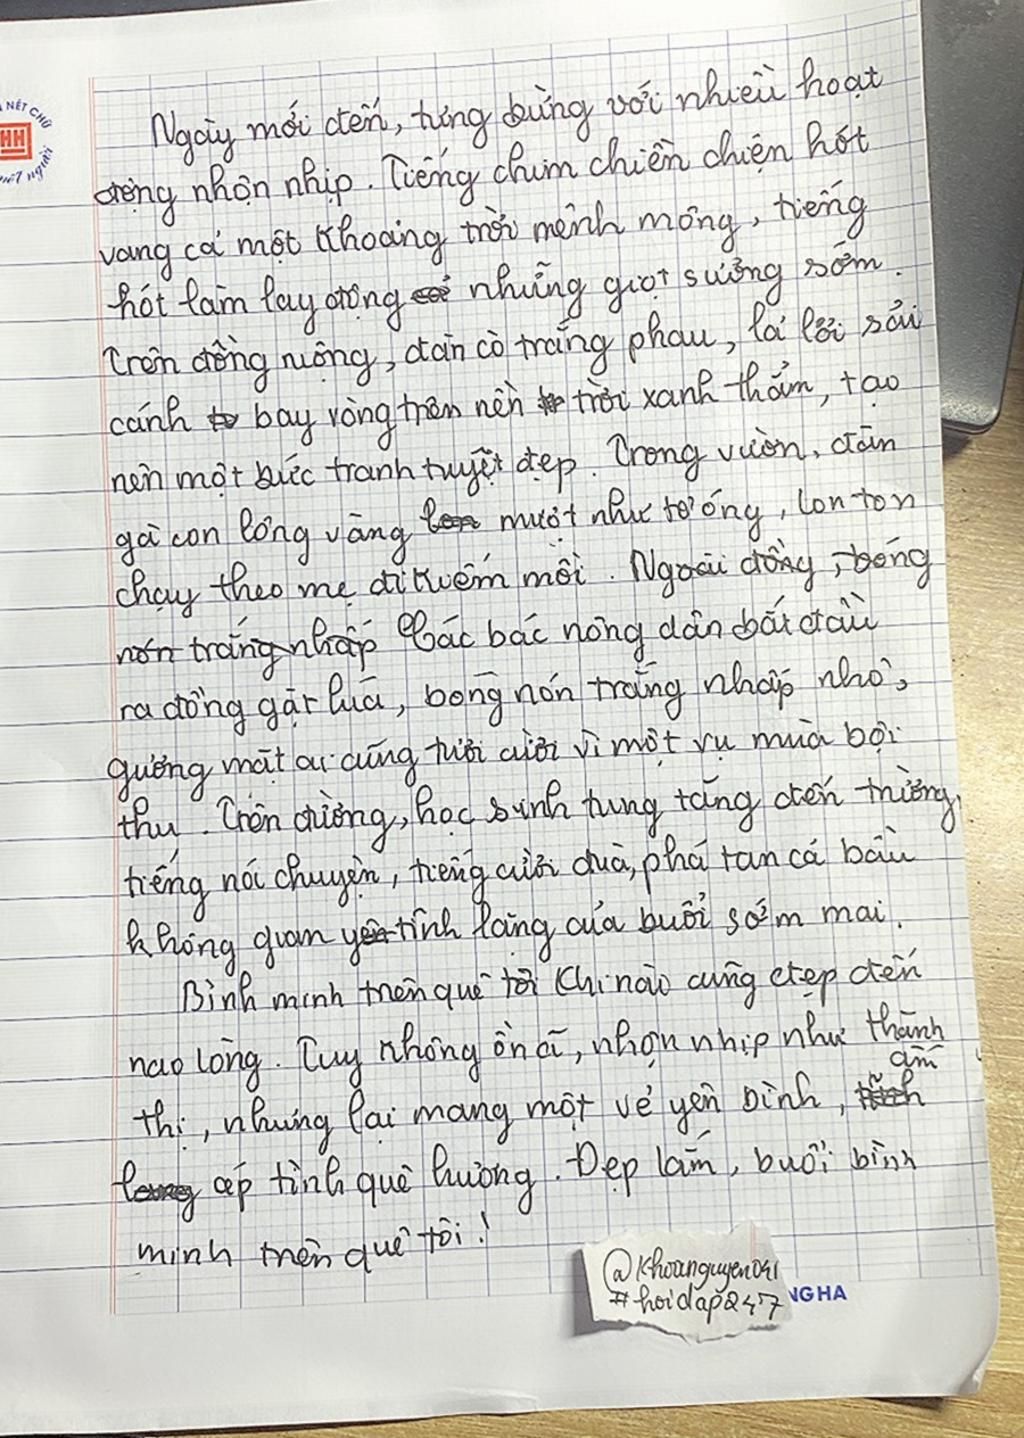 NÉT CHỮ
HH
nết người
Ngày mới đến, tưng bừng với nhiều hoạt
động nhộn nhịp. Tiếng chim chiền chiện hót
vang cả một khoảng trời mênh mông, tiếng
hót làm lay động những giọt sương sớm.
Trên đồng ruộng, đàn cò trắng phau, lả lơi sải
cánh bay vòng trên nền trời xanh thẳm, tạo
nên một bức tranh tuyệt đẹp. Trong vườn, đàn
gà con lông vàng mượt như tơ óng, lon ton
chạy theo mẹ đi kiếm mồi. Ngoài đồng, bóng
nón trắng nhấp Các bác nông dân bắt đầu
ra đồng gặt lúa, bóng nón trắng nhấp nhô,
gương mặt ai cũng tươi cười vì một vụ mùa bội
thu. Trên đường, học sinh tung tăng đến trường,
tiếng nói chuyện, tiếng cười đùa, phá tan cả bầu
không gian yên tĩnh lặng của buổi sớm mai.
Bình minh trên quê tôi khi nào cũng đẹp đến
nao lòng. Tuy không ồn ã, nhộn nhịp như thành
thị, nhưng lại mang một vẻ yên bình, ấm
áp tình quê hương. Đẹp lắm, buổi bình
minh trên quê tôi!
@khoanguyen041
#hoidap247
NG HA